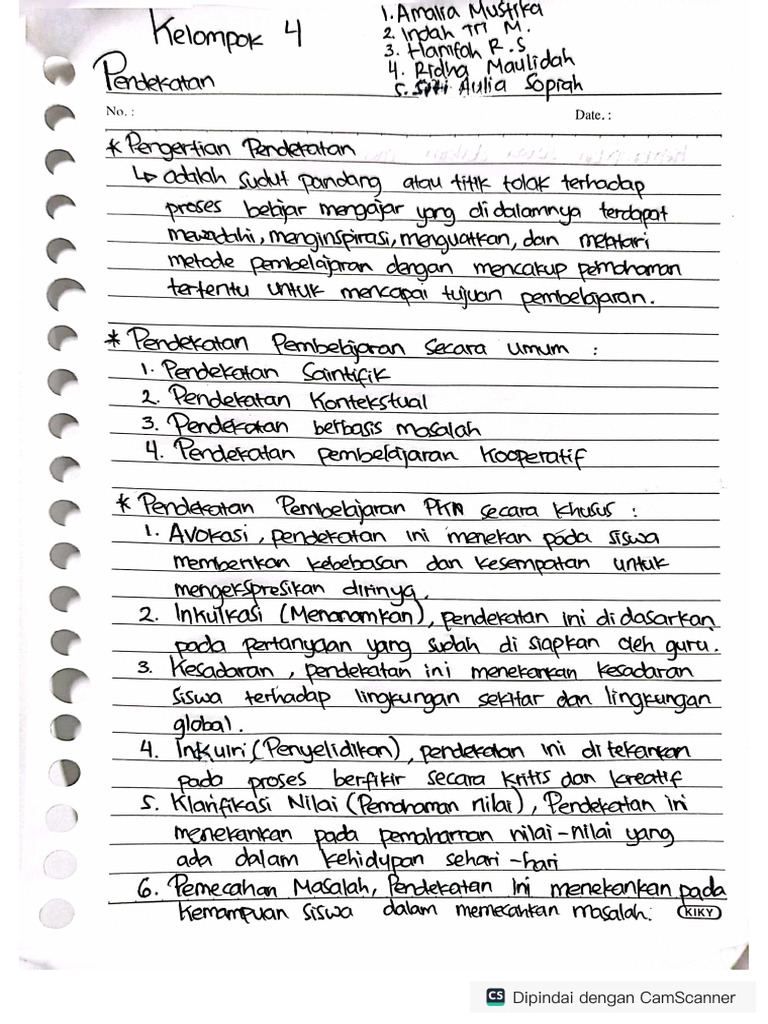 Kelompok 4
1. Amalia Mustika
2. Indah Tri M.
3. Hanifah R.S
4. Ridha Maulidah
5. Siti Aulia Sopiah
Pendekatan
No. :
Date. :
* Pengertian Pendekatan
↳ adalah sudut pandang atau titik tolak terhadap
proses belajar mengajar yang didalamnya terdapat
mewadahi, menginspirasi, menguatkan, dan melatari
metode pembelajaran dengan mencakup pemahaman
tertentu untuk mencapai tujuan pembelajaran.
* Pendekatan Pembelajaran secara umum :
1. Pendekatan Saintifik
2. Pendekatan Kontekstual
3. Pendekatan berbasis masalah
4. Pendekatan pembelajaran Kooperatif
* Pendekatan Pembelajaran PKN secara khusus :
1. Avokasi, pendekatan ini menekan pada siswa
memberikan kebebasan dan kesempatan untuk
mengekspresikan dirinya.
2. Inkulkasi (Menanamkan), pendekatan ini didasarkan
pada pertanyaan yang sudah di siapkan oleh guru.
3. Kesadaran, pendekatan ini menekankan kesadaran
siswa terhadap lingkungan sekitar dan lingkungan
global.
4. Inkuiri (Penyelidikan), pendekatan ini di tekankan
pada proses berfikir secara kritis dan kreatif
5. Klarifikasi Nilai (Pemahaman nilai), Pendekatan ini
menekankan pada pemahaman nilai-nilai yang
ada dalam kehidupan sehari-hari
6. Pemecahan Masalah, Pendekatan ini menekankan pada
kemampuan siswa dalam memecahkan masalah.
KIKY
CS Dipindai dengan CamScanner